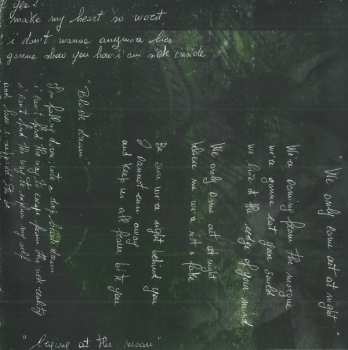 yes!
make my heart so worst
i don't wanna anymore lies
gonna show you how i am sick inside
"Black dream"
I'm falling down into a deep black dream
i can't find the way to escape from this sick reality
i can't find the way to explain my self
and
"We only come out at night"
We're coming from the morgue
we're gonna eat your soul
we live at the edge of your mind
We only come out at night
believe me we're not a fake
Be sure we're right behind you
I cannot run away
and keep us all from bite you
at the moon"